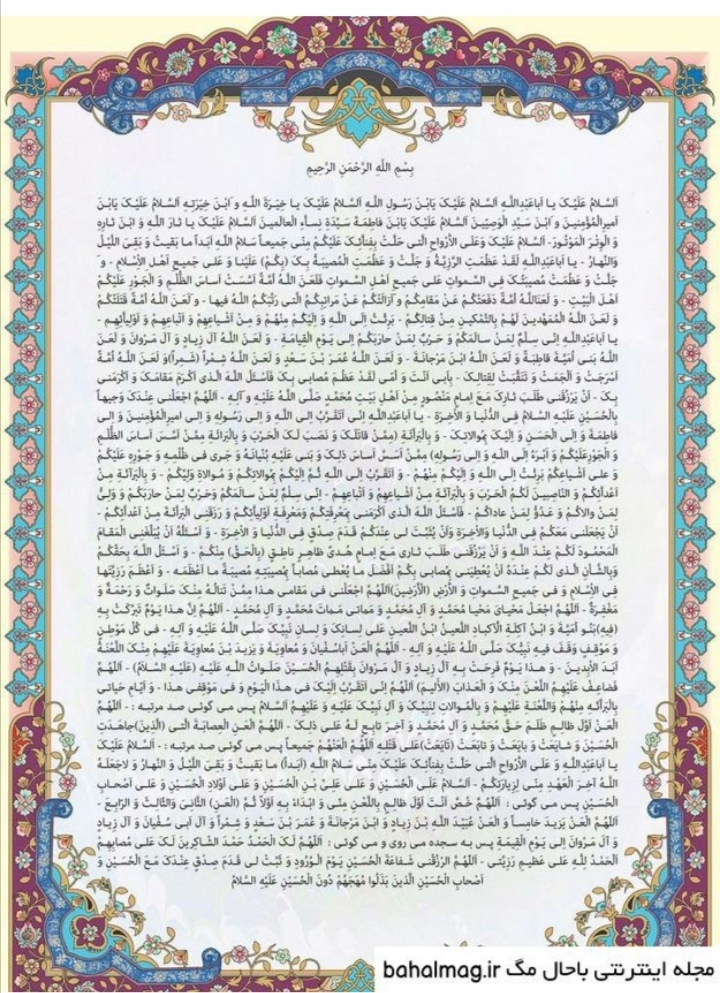 بِسْمِ اللَّهِ الرَّحْمَنِ الرَّحِيمِ
اَلسَّلامُ عَلَیْکَ یا اَباعَبْدِاللَّهِ اَلسَّلامُ عَلَیْکَ یَابْنَ رَسُولِ اللَّهِ اَلسَّلامُ عَلَیْکَ یا خِیَرَةَ اللَّهِ وَابْنَ خِیَرَتِهِ اَلسَّلامُ عَلَیْکَ یَابْنَ
اَمیرِالْمُؤْمِنینَ وَابْنَ سَیِّدِ الْوَصِیّینَ اَلسَّلامُ عَلَیْکَ یَابْنَ فاطِمَةَ سَیِّدَةِ نِساَّءِ الْعالَمینَ اَلسَّلامُ عَلَیْکَ یا ثارَ اللَّهِ وَ ابْنَ ثارِهِ
وَ الْوِتْرَ الْمَوْتُورَ- اَلسَّلامُ عَلَیْکَ وَعَلَی الْأَرْواحِ الَّتی حَلَّتْ بِفِناَّئِکَ عَلَیْکُمْ مِنّی جَمیعاً سَلامُ اللَّهِ اَبَداً ما بَقیتُ وَ بَقِیَ اللَّیْلُ
وَالنَّهارُ - یا اَباعَبْدِاللَّهِ لَقَدْ عَظُمَتِ الرَّزِیَّةُ وَ جَلَّتْ وَ عَظُمَتِ الْمُصیبَةُ بِکَ (بِکُمْ) عَلَیْنا وَ عَلی جَمیعِ اَهْلِ الْأِسْلامِ - وَ
جَلَّتْ وَ عَظُمَتْ مُصیبَتُکَ فِی السَّمواتِ عَلی جَمیعِ اَهْلِ السَّمواتِ فَلَعَنَ اللَّهُ اُمَّةً اَسَّسَتْ اَساسَ الظُّلْمِ وَ الْجَوْرِ عَلَیْکُمْ
اَهْلَ الْبَیْتِ - وَ لَعَنَاللَّهُ اُمَّةً دَفَعَتْکُمْ عَنْ مَقامِکُمْ وَاَزالَتْکُمْ عَنْ مَراتِبِکُمُ الَّتی رَتَّبَکُمُ اللَّهُ فیها - وَلَعَنَ اللَّهُ اُمَّةً قَتَلَتْکُمْ
وَ لَعَنَ اللَّهُ الْمُمَهِّدینَ لَهُمْ بِالتَّمْکینِ مِنْ قِتالِکُمْ - بَرِئْتُ اِلَی اللَّهِ وَ اِلَیْکُمْ مِنْهُمْ وَ مِنْ اَشْیاعِهِمْ وَ اَتْباعِهِمْ وَ اَوْلِیاَئِهِم -
یا اَباعَبْدِاللَّهِ اِنّی سِلْمٌ لِمَنْ سالَمَکُمْ وَ حَرْبٌ لِمَنْ حارَبَکُمْ اِلی یَوْمِ الْقِیامَةِ - وَ لَعَنَ اللَّهُ آلَ زِیادٍ وَ آلَ مَرْوانَ وَ لَعَنَ
اللَّهُ بَنی اُمَیَّةَ قاطِبَةً وَ لَعَنَ اللَّهُ ابْنَ مَرْجانَةَ - وَ لَعَنَ اللَّهُ عُمَرَ بْنَ سَعْدٍ وَ لَعَنَ اللَّهُ شِمْراً (شَمِراً)وَ لَعَنَ اللَّهُ اُمَّةً
اَسْرَجَتْ وَ اَلْجَمَتْ وَ تَنَقَّبَتْ لِقِتالِکَ - بِاَبی اَنْتَ وَ اُمّی لَقَدْ عَظُمَ مُصابی بِکَ فَاَسْئَلُ اللَّهَ الَّذی اَکْرَمَ مَقامَکَ وَ اَکْرَمَنی
بِکَ - اَنْ یَرْزُقَنی طَلَبَ ثارِکَ مَعَ اِمامٍ مَنْصُورٍ مِنْ اَهْلِ بَیْتِ مُحَمَّدٍ صَلَّی اللَّهُ عَلَیْهِ وَ آلِهِ - اَللّهُمَّ اجْعَلْنی عِنْدَکَ وَجیهاً
بِالْحُسَیْنِ عَلَیْهِ السَّلامُ فِی الدُّنْیا وَ الْأخِرَةِ - یا اَباعَبْدِاللَّهِ اِنّی اَتَقَرَّبُ اِلَی اللَّهِ وَ اِلی رَسُولِهِ وَ اِلی امیرِالْمُؤْمِنینَ وَ اِلی
فاطِمَةَ وَ اِلَی الْحَسَنِ وَ اِلَیْکَ بِمُوالاتِکَ - وَ بِالْبَراَئَةِ (مِمَّنْ قاتَلَکَ وَ نَصَبَ لَکَ الْحَرْبَ وَ بِالْبَرائَةِ مِمَّنْ اَسَّسَ اَساسَ الظُّلْمِ
وَ الْجَوْرِعَلَیْکُمْ وَ اَبْرَءُ اِلَی اللَّهِ وَ اِلی رَسُولِهِ) مِمَّنْ اَسَسَّ اَساسَ ذلِکَ وَ بَنی عَلَیْهِ بُنْیانَهُ وَ جَری فی ظُلْمِهِ وَ جَوْرِهِ عَلَیْکُمْ
وَ علی اَشْیاعِکُمْ بَرِئْتُ اِلَی اللَّهِ وَ اِلَیْکُمْ مِنْهُمْ - وَ اَتَقَرَّبُ اِلَی اللَّهِ ثُمَّ اِلَیْکُمْ بِمُوالاتِکُمْ وَ مُوالاةِ وَلِیِّکُمْ - وَ بِالْبَراَئَةِ مِنْ
اَعْداَئِکُمْ وَ النّاصِبینَ لَکُمُ الْحَرْبَ وَ بِالْبَراَئَةِ مِنْ اَشْیاعِهِمْ وَ اَتْباعِهِمْ - اِنّی سِلْمٌ لِمَنْ سالَمَکُمْ وَحَرْبٌ لِمَنْ حارَبَکُمْ وَ وَلِیٌّ
لِمَنْ والاکُمْ وَ عَدُوٌّ لِمَنْ عاداکُمْ - فَاَسْئَلُ اللَّهَ الَّذی اَکْرَمَنی بِمَعْرِفَتِکُمْ وَمَعْرِفَةِ اَوْلِیاَئِکُمْ وَ رَزَقَنِی الْبَراَئَةَ مِنْ اَعْداَئِکُمْ -
اَنْ یَجْعَلَنی مَعَکُمْ فِی الدُّنْیا وَالْأخِرَةِ وَاَنْ یُثَبِّتَ لی عِنْدَکُمْ قَدَمَ صِدْقٍ فِی الدُّنْیا وَ الْأخِرَةِ - وَ اَسْئَلُهُ اَنْ یُبَلِّغَنِی الْمَقامَ
الْمَحْمُودَ لَکُمْ عِنْدَ اللَّهِ وَ اَنْ یَرْزُقَنی طَلَبَ ثاری مَعَ اِمامٍ هُدیً ظاهِرٍ ناطِقٍ (بِالْحَقِّ) مِنْکُمْ - وَ اَسْئَلُ اللَّهَ بِحَقِّکُمْ
وَبِالشَّاْنِ الَّذی لَکُمْ عِنْدَهُ اَنْ یُعْطِیَنی بِمُصابی بِکُمْ اَفْضَلَ ما یُعْطی مُصاباً بِمُصیبَتِهِ مُصیبَةً ما اَعْظَمَه - وَ اَعْظَمَ رَزِیَّتَها
فِی الْأِسْلامِ وَ فی جَمیعِ السَّمواتِ وَ الْأَرْضِ (الْأَرَضینَ)اَللّهُمَّ اجْعَلْنی فی مَقامی هذا مِمَّنْ تَنالُهُ مِنْکَ صَلَواتٌ وَ رَحْمَةٌ وَ
مَغْفِرَةٌ - اَللّهُمَّ اجْعَلْ مَحْیایَ مَحْیا مُحَمَّدٍ وَ آلِ مُحَمَّدٍ وَ مَماتی مَماتَ مُحَمَّدٍ وَ آلِ مُحَمَّدٍ - اَللّهُمَّ اِنَّ هذا یَوْمٌ تَبَرَّکَتْ بِهِ
(فیهِ)بَنُو اُمَیَّةَ وَ ابْنُ آکِلَةِ الْأَکبادِ اللَّعینُ ابْنُ اللَّعینِ عَلی لِسانِکَ وَ لِسانِ نَبِیِّکَ صَلَّی اللَّهُ عَلَیْهِ وَ آلِهِ - فی کُلِّ مَوْطِنٍ
وَ مَوْقِفٍ وَقَفَ فیهِ نَبِیُّکَ صَلَّی اللَّهُ عَلَیْهِ وَ آلِهِ - اَللّهُمَّ الْعَنْ اَباسُفْیانَ وَ مُعاوِیَةَ وَ یَزیدَ بْنَ مُعاوِیَةَ عَلَیْهِمْ مِنْکَ اللَّعْنَةُ
اَبَدَ الْأبِدینَ - وَ هذا یَوْمٌ فَرِحَتْ بِهِ آلُ زِیادٍ وَ آلُ مَرْوانَ بِقَتْلِهِمُ الْحُسَیْنَ صَلَواتُ اللَّهِ عَلَیْهِ (عَلَیْهِ السَّلامُ) - اَللّهُمَّ
فَضاعِفْ عَلَیْهِمُ اللَّعْنَ مِنْکَ وَ الْعَذابَ (الْأَلیمَ) اَللّهُمَّ اِنّی اَتَقَرَّبُ اِلَیْکَ فی هذَا الْیَوْمِ وَ فی مَوْقِفی هذا - وَ اَیّامِ حَیاتی
بِالْبَراَئِهِ مِنْهُمْ وَاللَّعْنَةِ عَلَیْهِمْ وَ بِالْمُوالاتِ لِنَبِیِّکَ وَ آلِ نَبِیِّکَ عَلَیْهِ وَ عَلَیْهِمُ السَّلامُ پس می گوئی صد مرتبه : - اَللّهُمَّ
الْعَنْ اَوَّلَ ظالِمٍ ظَلَمَ حَقَّ مُحَمَّدٍ وَ آلِ مُحَمَّدٍ وَ آخِرَ تابِعٍ لَهُ عَلی ذلِکَ - اَللّهُمَّ الْعَنِ الْعِصابَةَ الَّتی (الَّذینَ)جاهَدَتِ
الْحُسَیْنَ وَ شایَعَتْ وَ بایَعَتْ وَ تابَعَتْ (تایَعَتْ)عَلی قَتْلِهِ اَللّهُمَّ الْعَنْهُمْ جَمیعاً پس می گوئی صد مرتبه :- اَلسَّلامُ عَلَیْکَ
یا اَباعَبْدِاللَّهِ وَ عَلَی الْأَرْواحِ الَّتی حَلَّتْ بِفِناَئِکَ عَلَیْکَ مِنّی سَلامُ اللَّهِ (اَبَداً) ما بَقیتُ وَ بَقِیَ اللَّیْلُ وَ النَّهارُ وَ لاجَعَلَهُ
اللَّهُ آخِرَ الْعَهْدِ مِنّی لِزِیارَتِکُمْ - اَلسَّلامُ عَلَی الْحُسَیْنِ وَ عَلی عَلِیِّ بْنِ الْحُسَیْنِ وَ عَلی اَوْلادِ الْحُسَیْنِ وَ عَلی اَصْحابِ
الْحُسَیْنِ پس می گوئی : اَللّهُمَّ خُصَّ اَنْتَ اَوَّلَ ظالِمٍ بِاللَّعْنِ مِنّی وَ ابْدَاءْ بِهِ اَوَّلاً ثُمَّ (الْعَنِ) الثّانِیَ وَالثّالِثَ وَ الرّابِعَ -
اَللّهُمَّ الْعَنْ یَزیدَ خامِساً وَ الْعَنْ عُبَیْدَ اللَّهِ بْنَ زِیادٍ وَ ابْنَ مَرْجانَةَ وَ عُمَرَ بْنَ سَعْدٍ وَ شِمْراً وَ آلَ اَبی سُفْیانَ وَ آلَ زِیادٍ
وَ آلَ مَرْوانَ اِلی یَوْمِ الْقِیمَةِ پس به سجده می روی و می گوئی : اَللّهُمَّ لَکَ الْحَمْدُ حَمْدَ الشّاکِرینَ لَکَ عَلی مُصابِهِمْ
اَلْحَمْدُ لِلَّهِ عَلی عَظیمِ رَزِیَّتی - اَللّهُمَّ ارْزُقْنی شَفاعَةَ الْحُسَیْنِ یَوْمَ الْوُرُودِ وَ ثَبِّتْ لی قَدَمَ صِدْقٍ عِنْدَکَ مَعَ الْحُسَیْنِ وَ
اَصْحابِ الْحُسَیْنِ الَّذینَ بَذَلُوا مُهَجَهُمْ دُونَ الْحُسَیْنِ عَلَیْهِ السَّلامُ
مجله اینترنتی باحال مگ bahalmag.ir